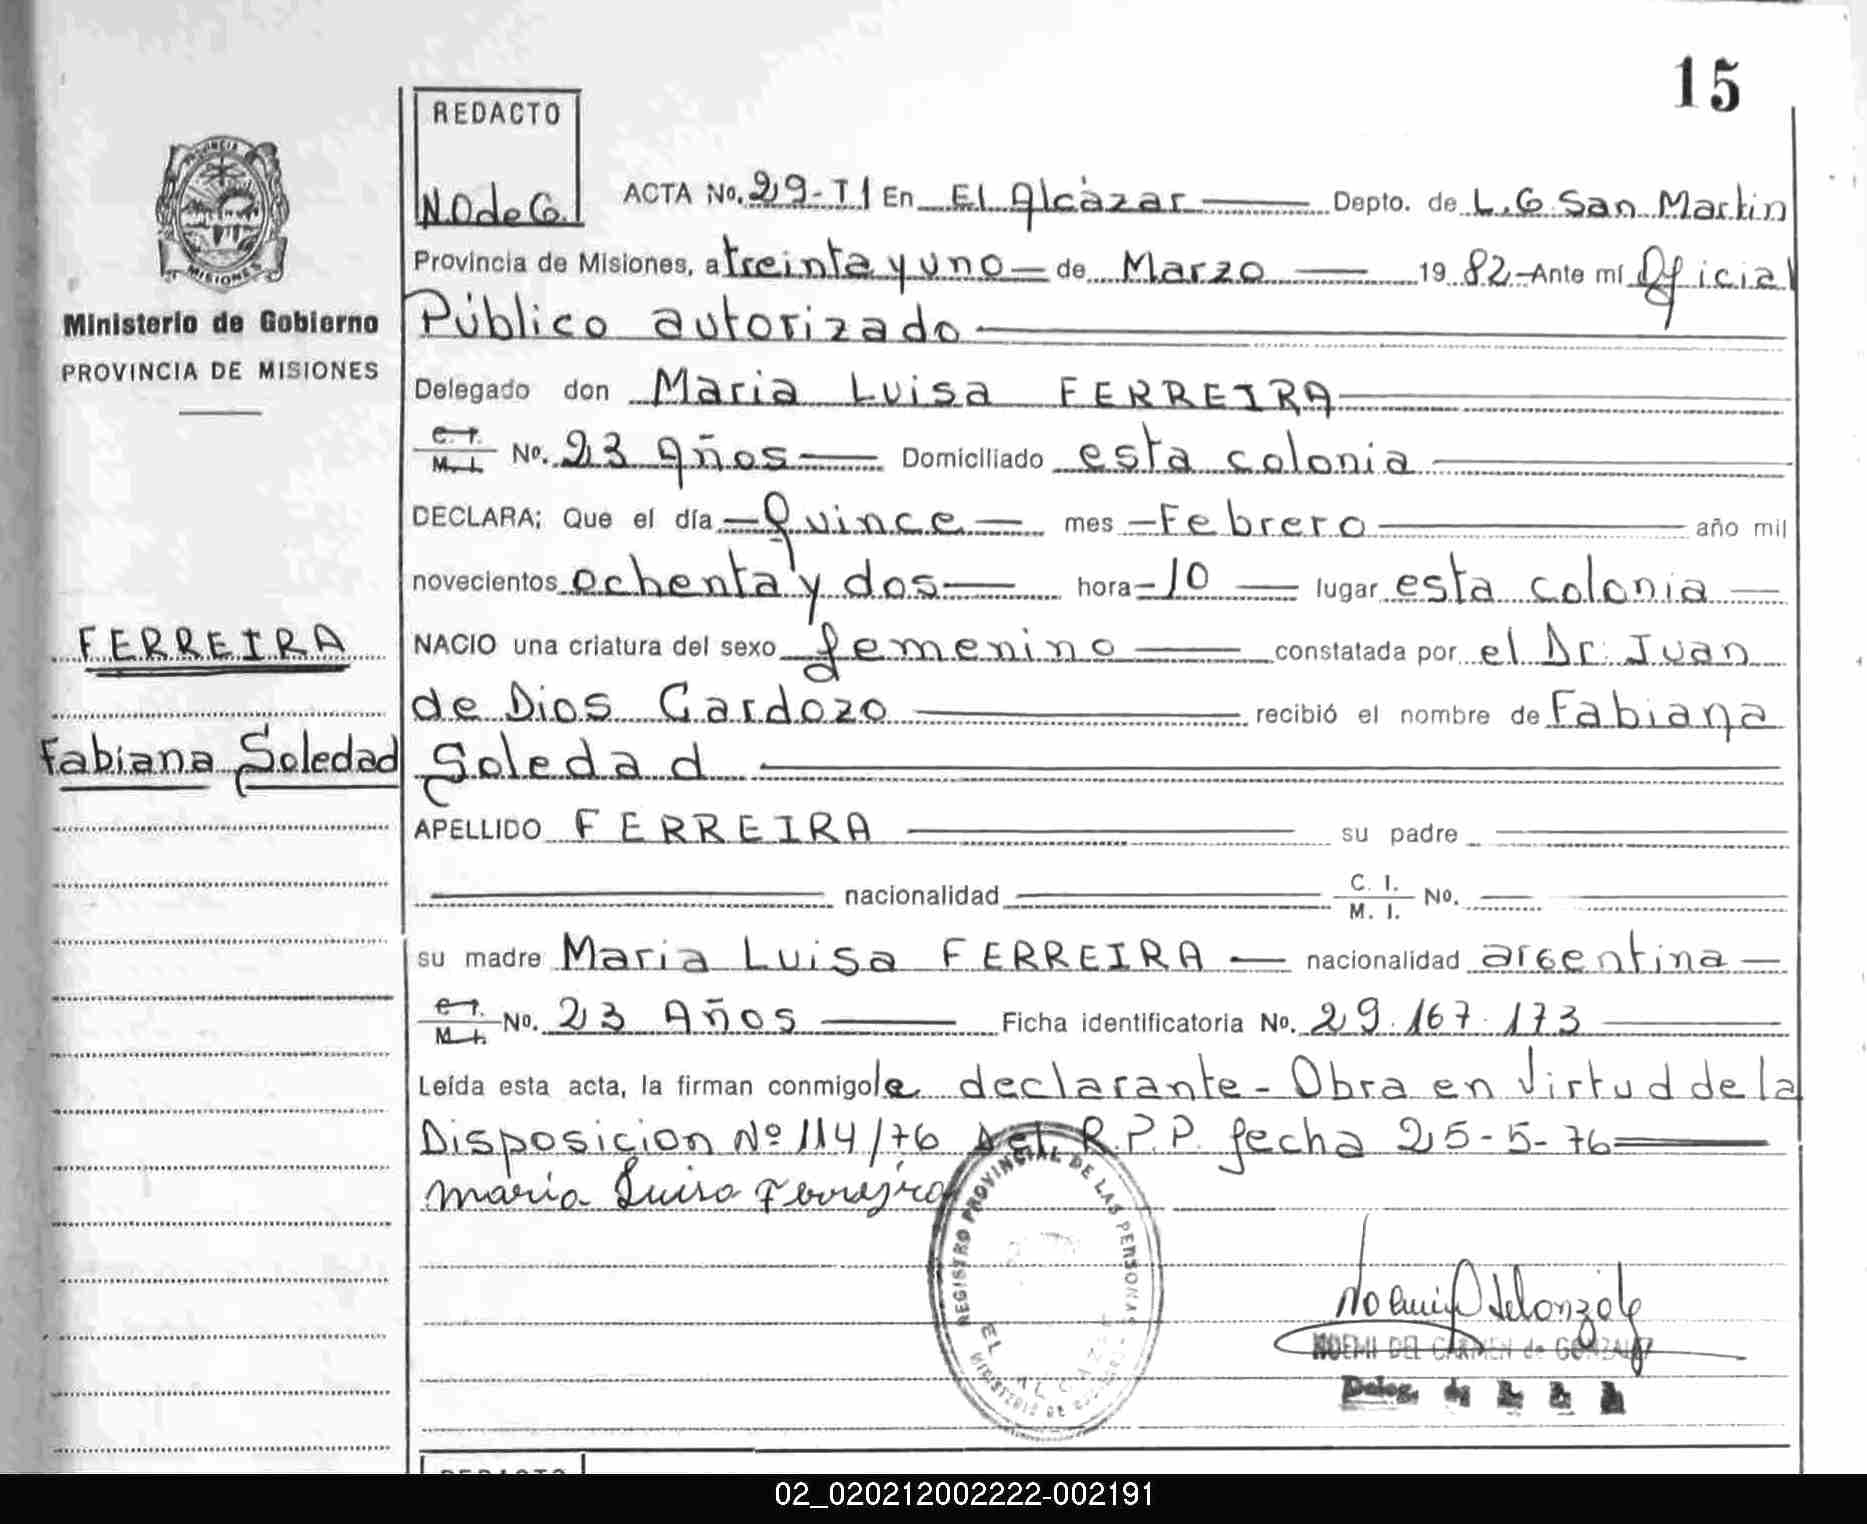 15
REDACTO
N.O de G.
ACTA No. 29-T1 En El Alcázar Depto. de L.G San Martin
PROVINCIA
MISIONES
Provincia de Misiones, a treinta y uno de Marzo 19 82 Ante mí Oficial
Ministerio de Gobierno
Público autorizado
PROVINCIA DE MISIONES
Delegado don Maria Luisa FERREIRA
C. I. M. I. No. 23 Años Domiciliado esta colonia
DECLARA; Que el día Quince mes Febrero año mil
novecientos ochenta y dos hora 10 lugar esta colonia
FERREIRA
NACIO una criatura del sexo femenino constatada por el Dr. Juan
de Dios Cardozo recibió el nombre de Fabiana
Fabiana Soledad
Soledad
APELLIDO FERREIRA su padre
nacionalidad C. I. M. I. No.
su madre Maria Luisa FERREIRA nacionalidad argentina
C. I. M. I. No. 23 Años Ficha identificatoria No. 29.167.173
Leída esta acta, la firman conmigo la declarante - Obra en virtud de la
Disposicion Nº 114/76 del R.P.P. fecha 25-5-76
Maria Luisa Ferreira
REGISTRO PROVINCIAL DE LAS PERSONAS
EL ALCAZAR
MINISTERIO DE GOBIERNO
NOEMI DEL CARMEN de GONZALEZ
Deleg. de
REDACTO
02_020212002222-002191